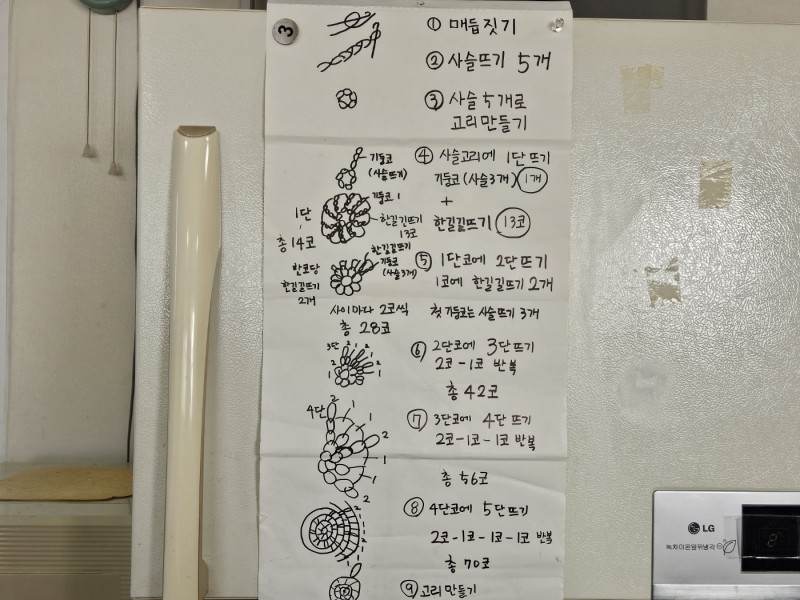 3
① 매듭짓기
② 사슬뜨기 5개
③ 사슬 5개로
고리만들기
④ 사슬고리에 1단뜨기
기둥코(사슬3개) 1개
+
한길긴뜨기 13코
기둥코
(사슬뜨기)
기둥코 1
한길긴뜨기
13코
1단
총 14코
⑤ 1단코에 2단뜨기
1코에 한길긴뜨기 2개
첫 기둥코는 사슬뜨기 3개
한길긴뜨기
기둥코
(사슬3개)
한코당
한길긴뜨기
2개
사이마다 2코씩
총 28코
⑥ 2단코에 3단뜨기
2코-1코 반복
총 42코
3단 2 1 2 1 2
2
1
⑦ 3단코에 4단 뜨기
2코-1코-1코 반복
총 56코
4단 2
1
1
2
1
1
2
⑧ 4단코에 5단뜨기
2코-1코-1코-1코 반복
총 70코
⑨ 고리만들기
LG
8